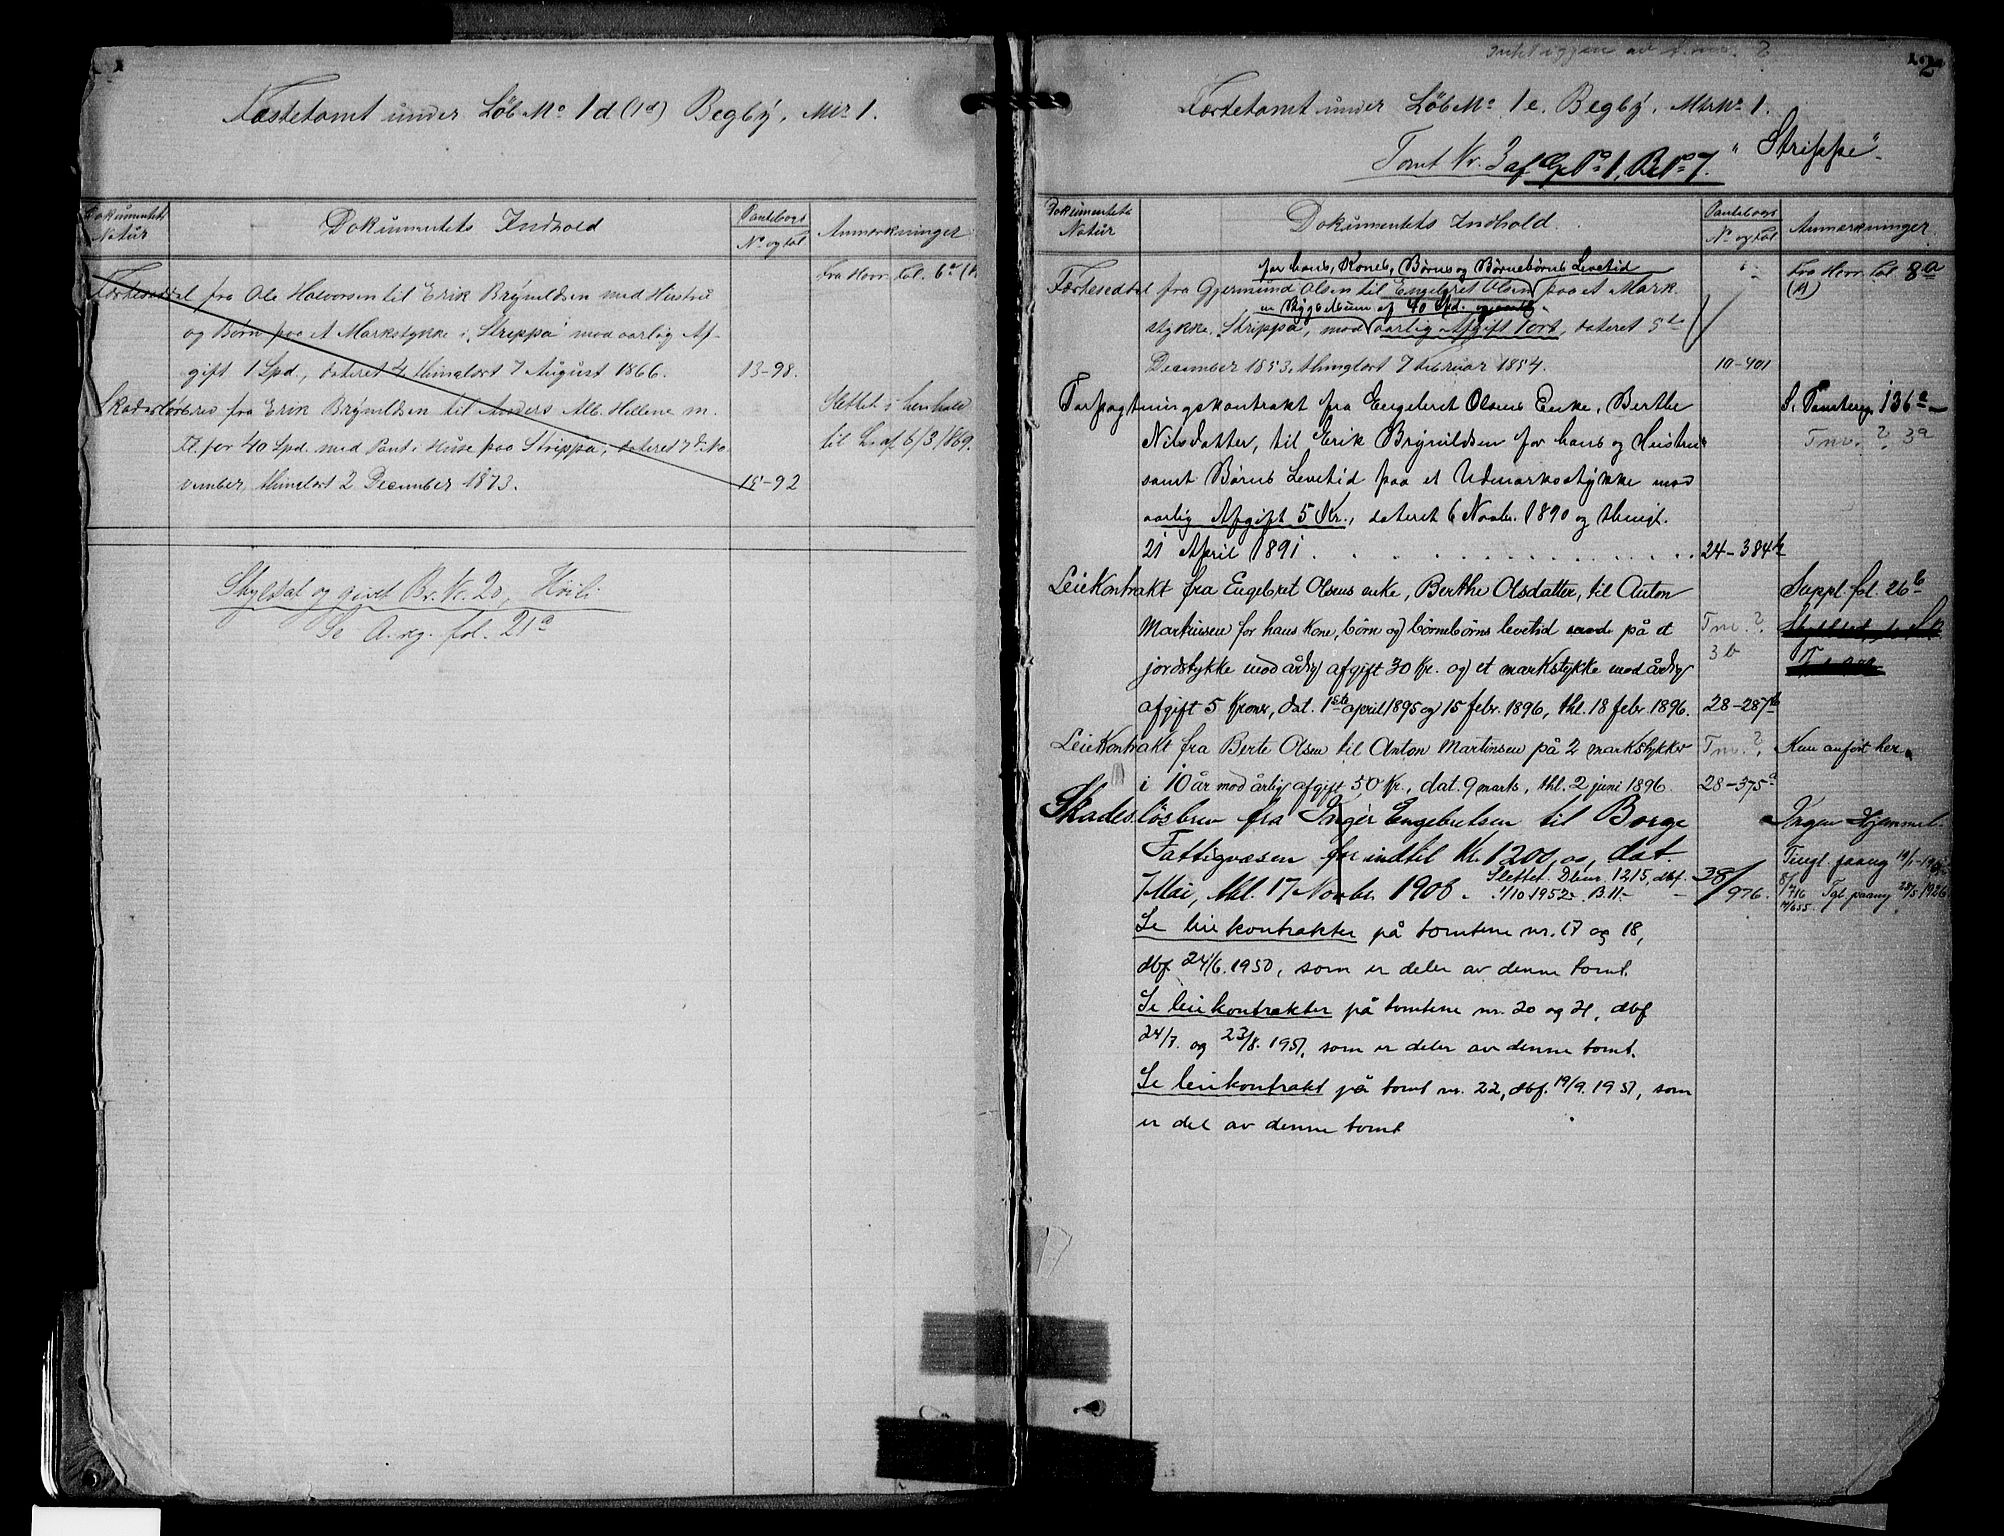 Fæstetomt under Løb No 1d (1d) Begby, Mk 1.
Dokumentets Natur
Dokumentets Indhold
Pantebogs No og fol
Anmærkninger
Fra Horr. fol. 6a
Fæstesedel fra Ole Halvorsen til Erik Brynildsen med Hustru
og Børn paa et Markstykke i "Strippa" mod aarlig Af-
gift 1 Spd., dateret thinglæst 7 August 1866.
13-98.
Skadesløsbrev fra Erik Brynildsen til Anders Alb. Hellene m.
fl. for 40 Spd. med Pant i Huse paa Strippa, dateret 7de No
vember, thinglæst 2 December 1873.
15-92
Slettet i henhold
til L. af 6/3 1869.
Skyldsat og givet Br. Nr. 20, Høili
Se A. reg. fol. 21a
2
Fæstetomt under Løb No 1e. Begby, Mk No 1.
Tomt Nr. 3 af G No 1, B No 7. "Strippe".
Dokumentets Natur
Dokumentets Indhold.
Pantebogs No og fol
Anmærkninger
for hans, Kones, Børns og Børnebørns Levetid
Fæstesedel fra Gjermund Olsen til Engelret Olsen paa et Mark
en Bygselsum af 40 Spd. og
stykke, Strippa, mod aarlig Afgift 1 ort, dateret 5te
December 1853, thinglæst 7 Februar 1854.
10-401
Fra Horr. fol. 8a
Forpagtningskontrakt fra Engebret Olsens Enke, Berthe
Nilsdatter, til Erik Brynildsen for hans og Hustrus
samt Børns Levetid paa et Udmarksstykke mod
aarlig Afgift 5 Kr., dateret 6 Novbr. 1890 og thingl.
21 April 1891
24-384b
S. Panterег. 136a
Tnr. ?. 3a
Leiekontrakt fra Engebret Olsens enke, Berthe Olsdatter, til Anton
Markussen for hans kone, børn og børnebørns levetid på et
jordstykke mod årlig afgift 30 Kr. og et markstykke mod årlig
afgift 5 Kroner, dat. 1ste april 1895 og 15 febr. 1896, thl. 18 febr. 1896.
Tnr. ?.
3b
28-287b
Suppl. fol. 26b
Leiekontrakt fra Berte Olsen til Anton Martinsen på 2 markstykker
i 10 år mod årlig afgift 50 Kr., dat. 9 marts, thl. 2 juni 1896.
Tnr. ?.
28-375a
Kun anført her.
Skadesløsbrev fra Inger Engebretsen til Borge
Fattigvæsen for indtil Kr. 1200, dat.
7 Mai, thl. 17 Novbr 1908.
Slettet. Dbnr. 1215, dbf.
1/10 1952. B. 11.
38/976.
Ingen Hjemmel.
Tingl. paany
Tgl. paany 28/5 1926
Se leiekontrakter på tomtene nr. 17 og 18,
dbf 24/6. 1950, som er deler av denne tomt.
Se leiekontrakter på tomtene nr. 20 og 21, dbf
24/7. og 23/8. 1951, som er deler av denne tomt.
Se leiekontrakt på tomt nr. 22, dbf. 19/9. 1951, som
er del av denne tomt